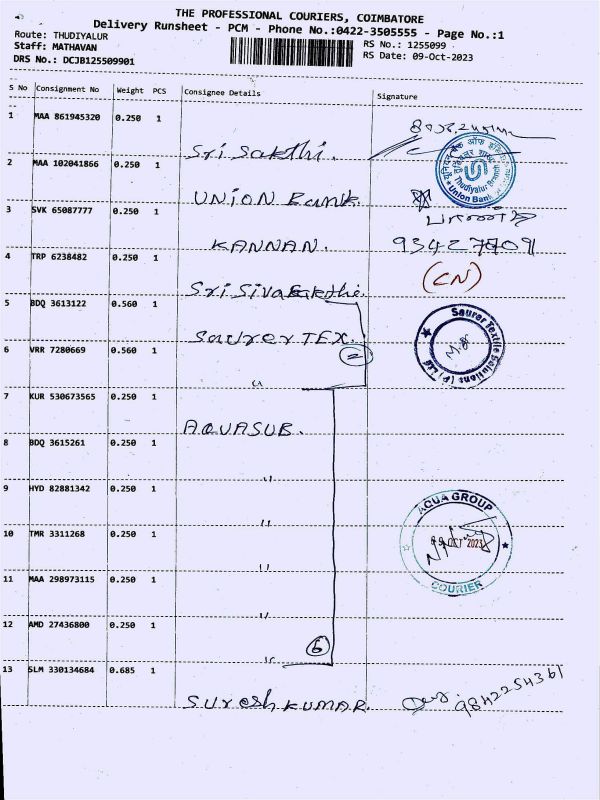 THE PROFESSIONAL COURIERS, COIMBATORE
Delivery Runsheet - PCM - Phone No.:0422-3505555 - Page No.:1
Route: THUDIYALUR
Staff: MATHAVAN
DRS No.: DCJB125509901
RS No.: 1255099
RS Date: 09-Oct-2023
S No Consignment No Weight PCS Consignee Details Signature
1 MAA 861945320 0.250 1
Sri Sakthi.
2 MAA 102041866 0.250 1
UNION Bank
यूनियन बैंक ऑफ इंडिया
Thudiyalur Branch
Union Bank
3 SVK 65087777 0.250 1
KANNAN.
4 TRP 6238482 0.250 1
Sri Sivasakthi.
(CN)
5 BDQ 3613122 0.560 1
Saurer TEX.
2
Saurer Textile Solutions (P) Ltd
6 VRR 7280669 0.560 1
"
7 KUR 530673565 0.250 1
AQUASUB.
8 BDQ 3615261 0.250 1
"
9 HYD 82881342 0.250 1
"
AQUA GROUP
OCT 2023
COURIER
10 TMR 3311268 0.250 1
"
11 MAA 298973115 0.250 1
"
12 AMD 27436800 0.250 1
"
6
13 SLM 330134684 0.685 1
SURESH KUMAR.
9842254361